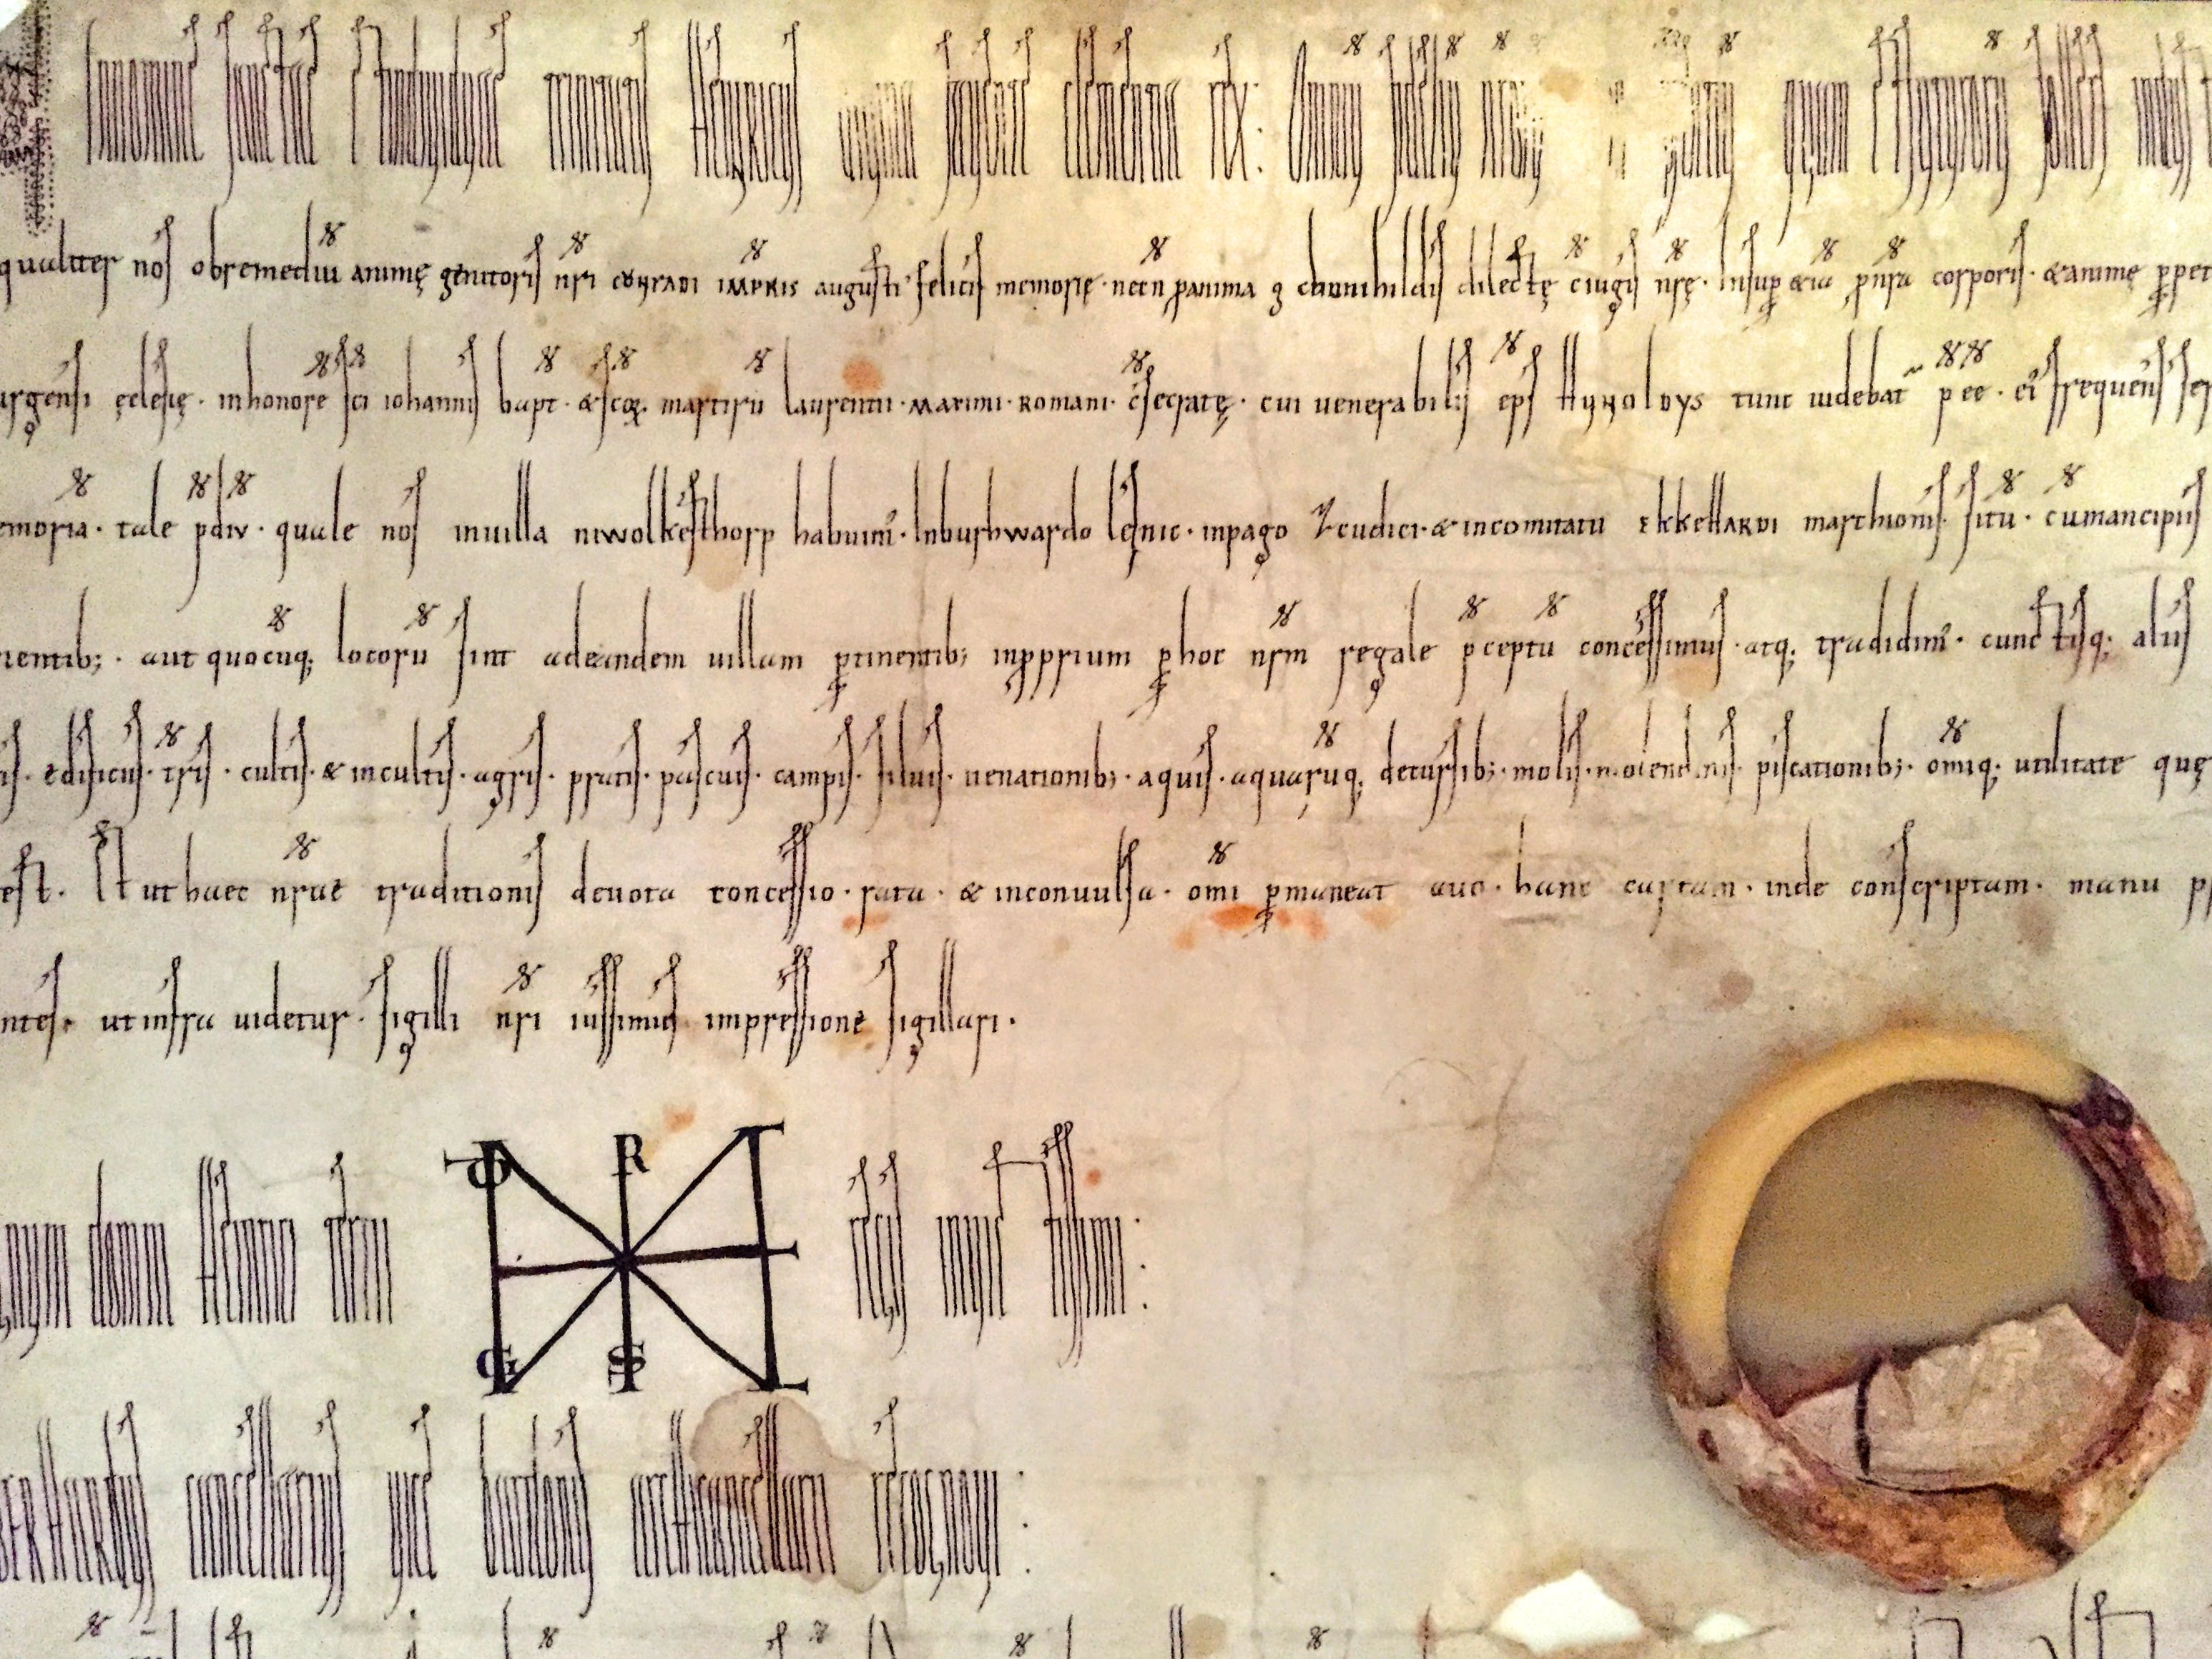 In nomine sanctae et individuae trinitatis Heinricus divina favente clementia rex: Omniu fideliu qua etia p̄sentiu quam et futuroru sollers indus
qualiter nos ob remediu animę genitoris nri CONRADI IMPRIS augusti felicis memorię · necn p̱ anima q chunihildis dilectę c̄iugis nrę · Insup̱ & ia p̄nsa corporis · & animę p̱pet
urgensi ęclesię · in honore sci iohannis bapt · & scoꝝ martiru laurentii · MAXIMI · ROMANI · c̄secratę · cui venerabilis eps HUNOLDUS tunc videbat̃ p ee · ei frequens ser
emoria · tale pdiu · quale nos in villa niwolkesthorp habuim · In burhwardo lesnic · in pago Zcudici · & in comitatu EKKEHARDI marchionis situ · cu mancipiis
nentib; · aut quocuq; locoru sint ad eandem villam p̱tinentib; in p̱prium p̱ hoc nrm regale p̄ceptu concessimus · atq; tradidim · cunctisq; aliis
is · edificiis · tris · cultis · & incultis · agris · pratis · pascuis · campis · silvis · venationib; · aquis · aquaruq; decursib; · molis · molendinis · piscationib; · omiq; utilitate quę
est · Et ut haec nrae traditionis devota concessio · rata · & inconvulsa · omi p̱maneat avo · hanc cartam · inde conscriptam · manu p
ntes · ut infra videtur · sigilli nri iussimus impressione sigillari ·
gnum domni Heinrici tercii regis invictissimi :
BERHARDUS cancellarius vice bardonis archicancellarii recognovi :